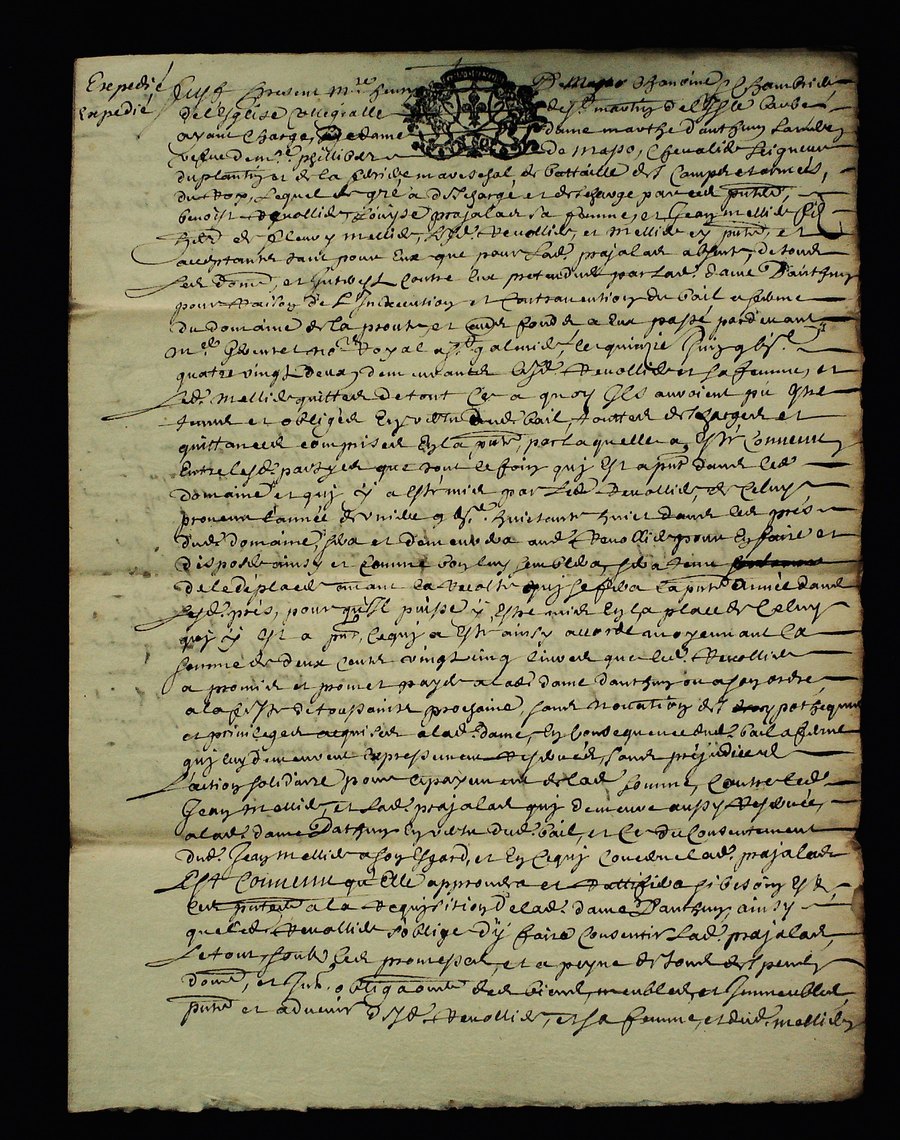 Expedié
Expedié
Fust present m.re henry De Masso Chanoine Chambrier
de l'Eglise Collegialle de S.t martin de l'Isle barbe
ayant Charge de dame dame marthe danthun
vefve de m.re philliber De Masso, Chevalier Seigneur
du plantin et de la mareschal de battaille des Camps et armées
du Roy, Lequel de gré a deschargé et descharge par ces p.ntes
benoist Revollier Louyse prajalas sa femme, et Jean mellier
de fleury mellier, lesd. Revollier et mellier cy p.nts, et
acceptants tant pour Eux que pour lad. prajalas absente, de tous
Les dom. et Interest Contre Eux pretendus par lad. dame D'anthun
pour Raison de L'Inexecution et Contravention du bail a ferme
du domaine de la et fonds a Eux passé pardevant
no.re Royal a S.t galmier, le quinze
quatre vingt deux, demeurants lesd. Revollier et sa femme, et
led. mellier quittes de tout Ce a quoy Ils auroient pû estre
tenus et obliges En vertu dud. bail, touttes descharges et
quittances comprises En la p.nte, par laquelle a Esté Convenu
Entre lesd. partyes que tout le foin quy Est a p.nt dans led.
domaine et quy y a Esté mis par led. Revollier de Celuy
provenu l'année derniere huictante huict dans les prés
dud. domaine, sera et demeurera aud. Revollier pour En faire et
disposer ainsy et Comme bon luy semblera, sera tenu
de le deplacer avant la Recolte quy se fera la p.nte année dans
lesd. prés, pour qu'Il puisse y Estre mis En la place de Celuy
quy y Est a p.nt, Ce quy a Esté ainsy accordé moyennant la
somme de deux Cents vingt cinq livres que led. Revollier
a promis et promet payer a lad. dame danthun ou a son ordre
a la feste de toussaints prochaine, sans novation des hypotheques
et privileges acquises a lad. dame, En Consequence dud. bail a ferme
quy luy demeurent Expressement Reservés, sans prejudice de
l'action solidaire pour le payement de lad. somme, Contre led.
Jean mellier et lad. prajalas quy demeure aussy Reservée
a lad. dame Danthun En vertu dud. bail, et Ce du Consentement
dud. Jean mellier a son Esgard, et En Ce quy Concerne lad. prajalas
Est Convenu qu'Elle approuvera et Rattifiera si besoin Est
Ces p.ntes a la Requisition de lad. dame D'anthun, ainsy
que led. Revollier s'oblige d'y faire Consentir lad. prajalas,
Le tout soubs les promesses, et a peyne de tous despens
dom., et Int. obligaons des biens, meubles, et Immeubles
p.nts et advenir desd. Revollier, et sa femme, et dud. mellier